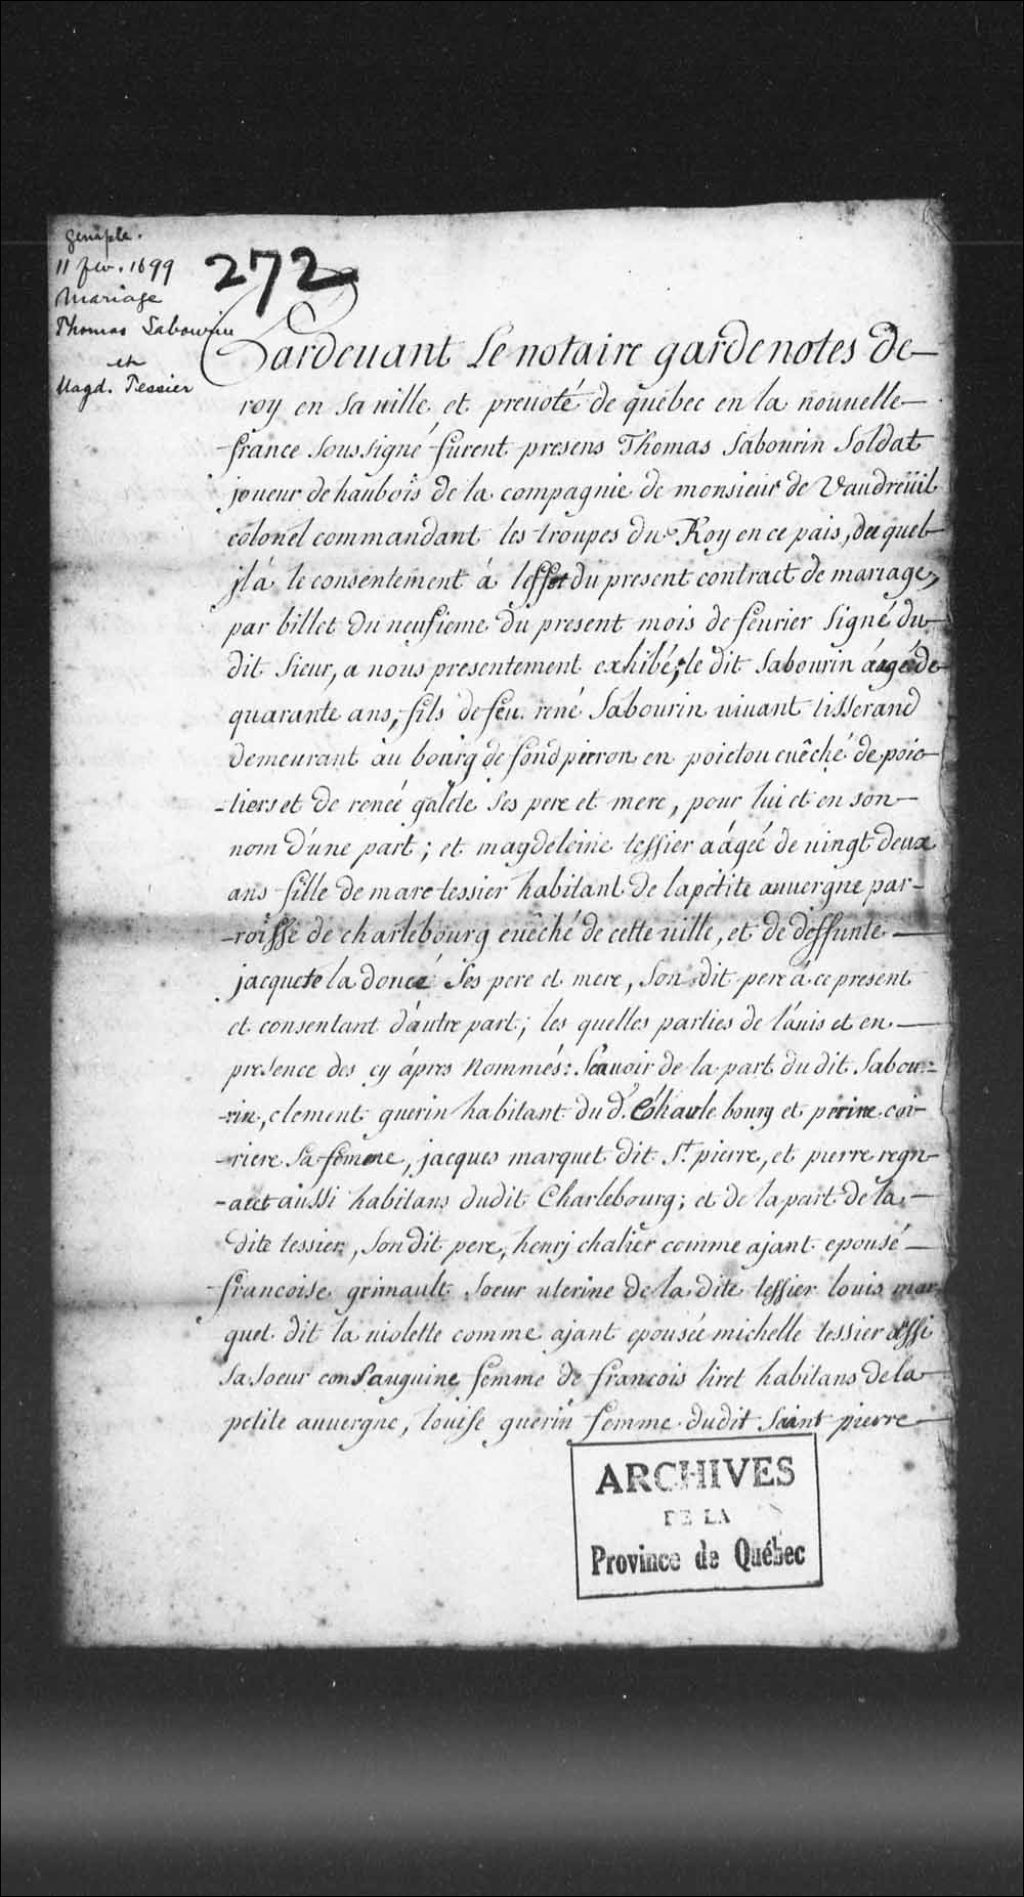 genaple.
11 fev. 1699
Mariage
Thomas Sabourin
et
Magd. Tessier
272
Pardeuant Le notaire gardenotes De
roy en sa uille et preuoté de québec en la nouuelle
france soussigné furent presens Thomas Sabourin Soldat
joueur de haubois de la compagnie de monsieur de Vaudreüil
colonel commandant les troupes du Roy en ce pais, du quel
jl à le consentement á l'effet du present contract de mariage,
par billet Du neufieme du present mois de feurier Signé du
dit Sieur, a nous presentement exhibé, le dit Sabourin áagé de
quarante ans, fils de feu rené Sabourin uiuant tisserand
Demeurant au bourg de fond pieron en poictou euêché de poic
-tiers et de renée galete Ses pere et mere, pour lui et en son
nom d'une part; et magdeleine tessier aágée de uingt deux
ans fille de marc tessier habitant de la petite auuergne par-
-roisse de charlebourg euêché de cette uille, et de deffunte
jacquete la doucé Ses pere et mere, Son dit pere á ce present
et consentant d'autre part; les quelles parties de l'áuis et en
presence des cy ápres Nommés: Sçauoir de la part du dit Sabou=
-rin, clement guerin habitant du d. Charle bourg et perine coi-
-riere sa femme, jacques marquet dit St. pierre, et pierre regn-
-aut aussi habitans dudit Charlebourg; et de la part de la
dite tessier, Son dit pere, henrj chalier comme ajant epousé
francoise grimault Soeur uterine de la dite tessier louis mar
quet dit la uiolette comme ajant epousée michelle tessier aussi
Sa Soeur consanguine femme de francois liret habitans de la
petite auuergne, louise guerin femme dudit Saint pierre
ARCHIVES
DE LA
Province de Québec